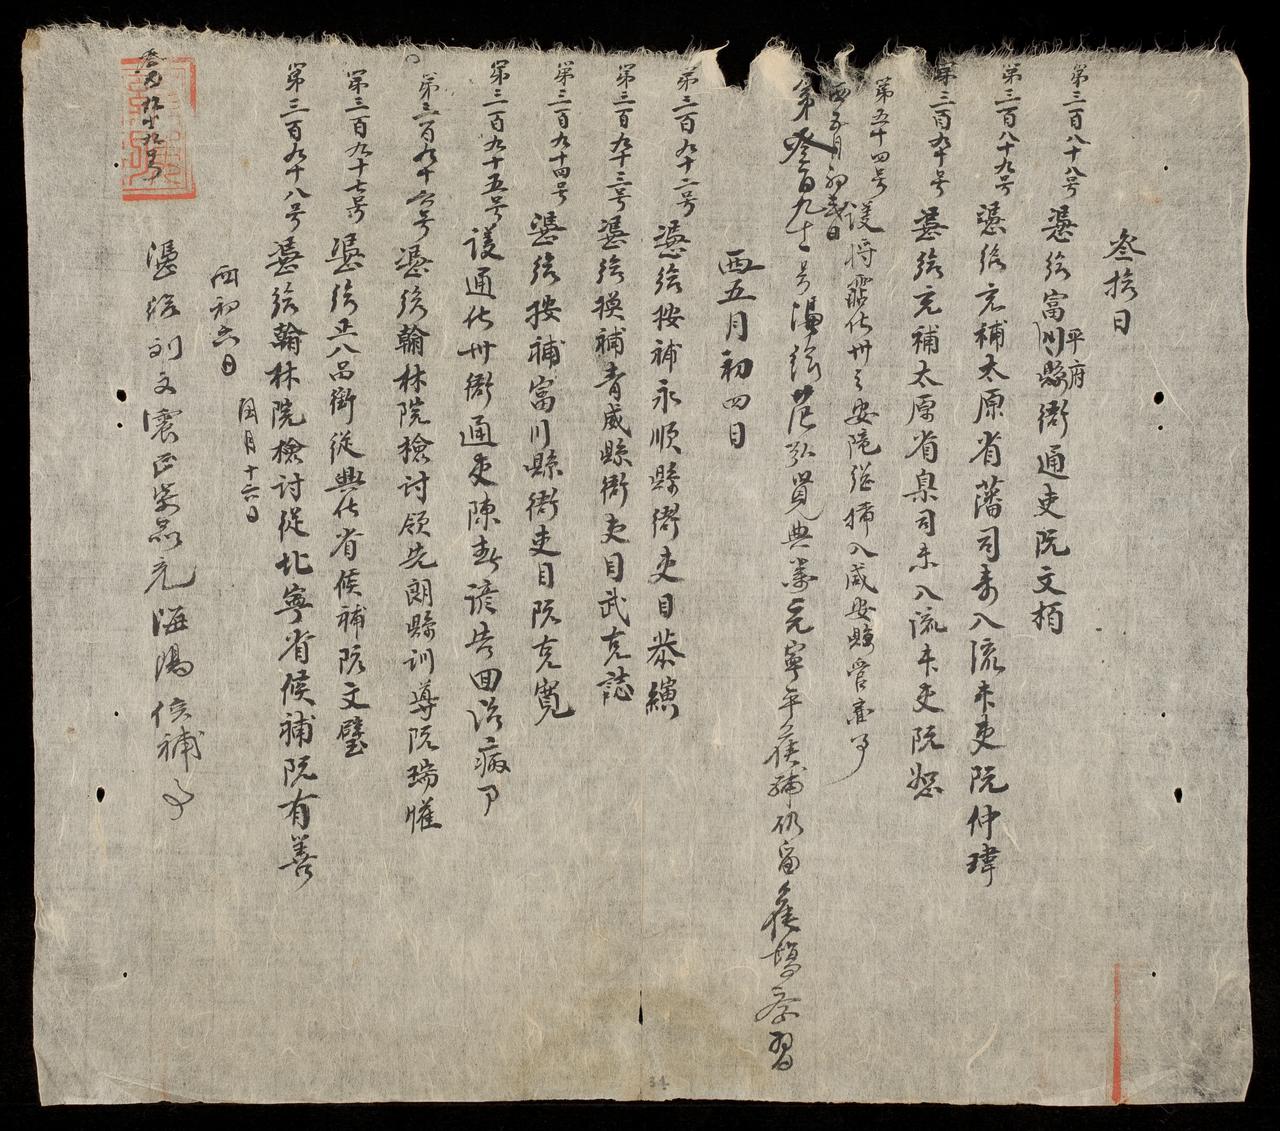 叁拾日
第三百八十八号 憑給富川縣衙通吏阮文栢
平府
第三百八十九号 憑給充補太原省藩司未入流末吏阮仲瑋
第三百九十号 憑給充補太原省臬司未入流末吏阮恕
第五十四号 護将歸化州之安隆總插入咸安縣管查了
酉五月初弍日
第叁百九十一号 憑給范弘覺典簿充寧平候補仍留舊塲学習
酉五月初四日
第三百九十二号 憑給按補永順縣衙吏目恭縯
第三百九十三号 憑給換補青威縣衙吏目武克誌
第三百九十四号 憑給按補富川縣衙吏目阮克寬
第三百九十五号 護通化州衙通吏陳 諺告回治病了
第三百九十六号 憑給翰林院檢討領先朗縣訓導阮瑞㒞
第三百九十七号 憑給正八品銜從興化省候補阮文璧
第三百九十八号 憑給翰林院檢討從北寧省候補阮有善
閏月十六日
酉初六日
叁百九十九号
憑給 文震正 品充海陽候補了
34